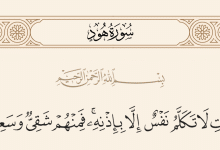 سُورَةُ هُودٍ
بِسْمِ اللَّهِ الرَّحْمَٰنِ الرَّحِيمِ
تِ لَا تَكَلَّمُ نَفْسٌ إِلَّا بِإِذْنِهِۦ ۚ فَمِنْهُمْ شَقِىٌّ وَسَعِ